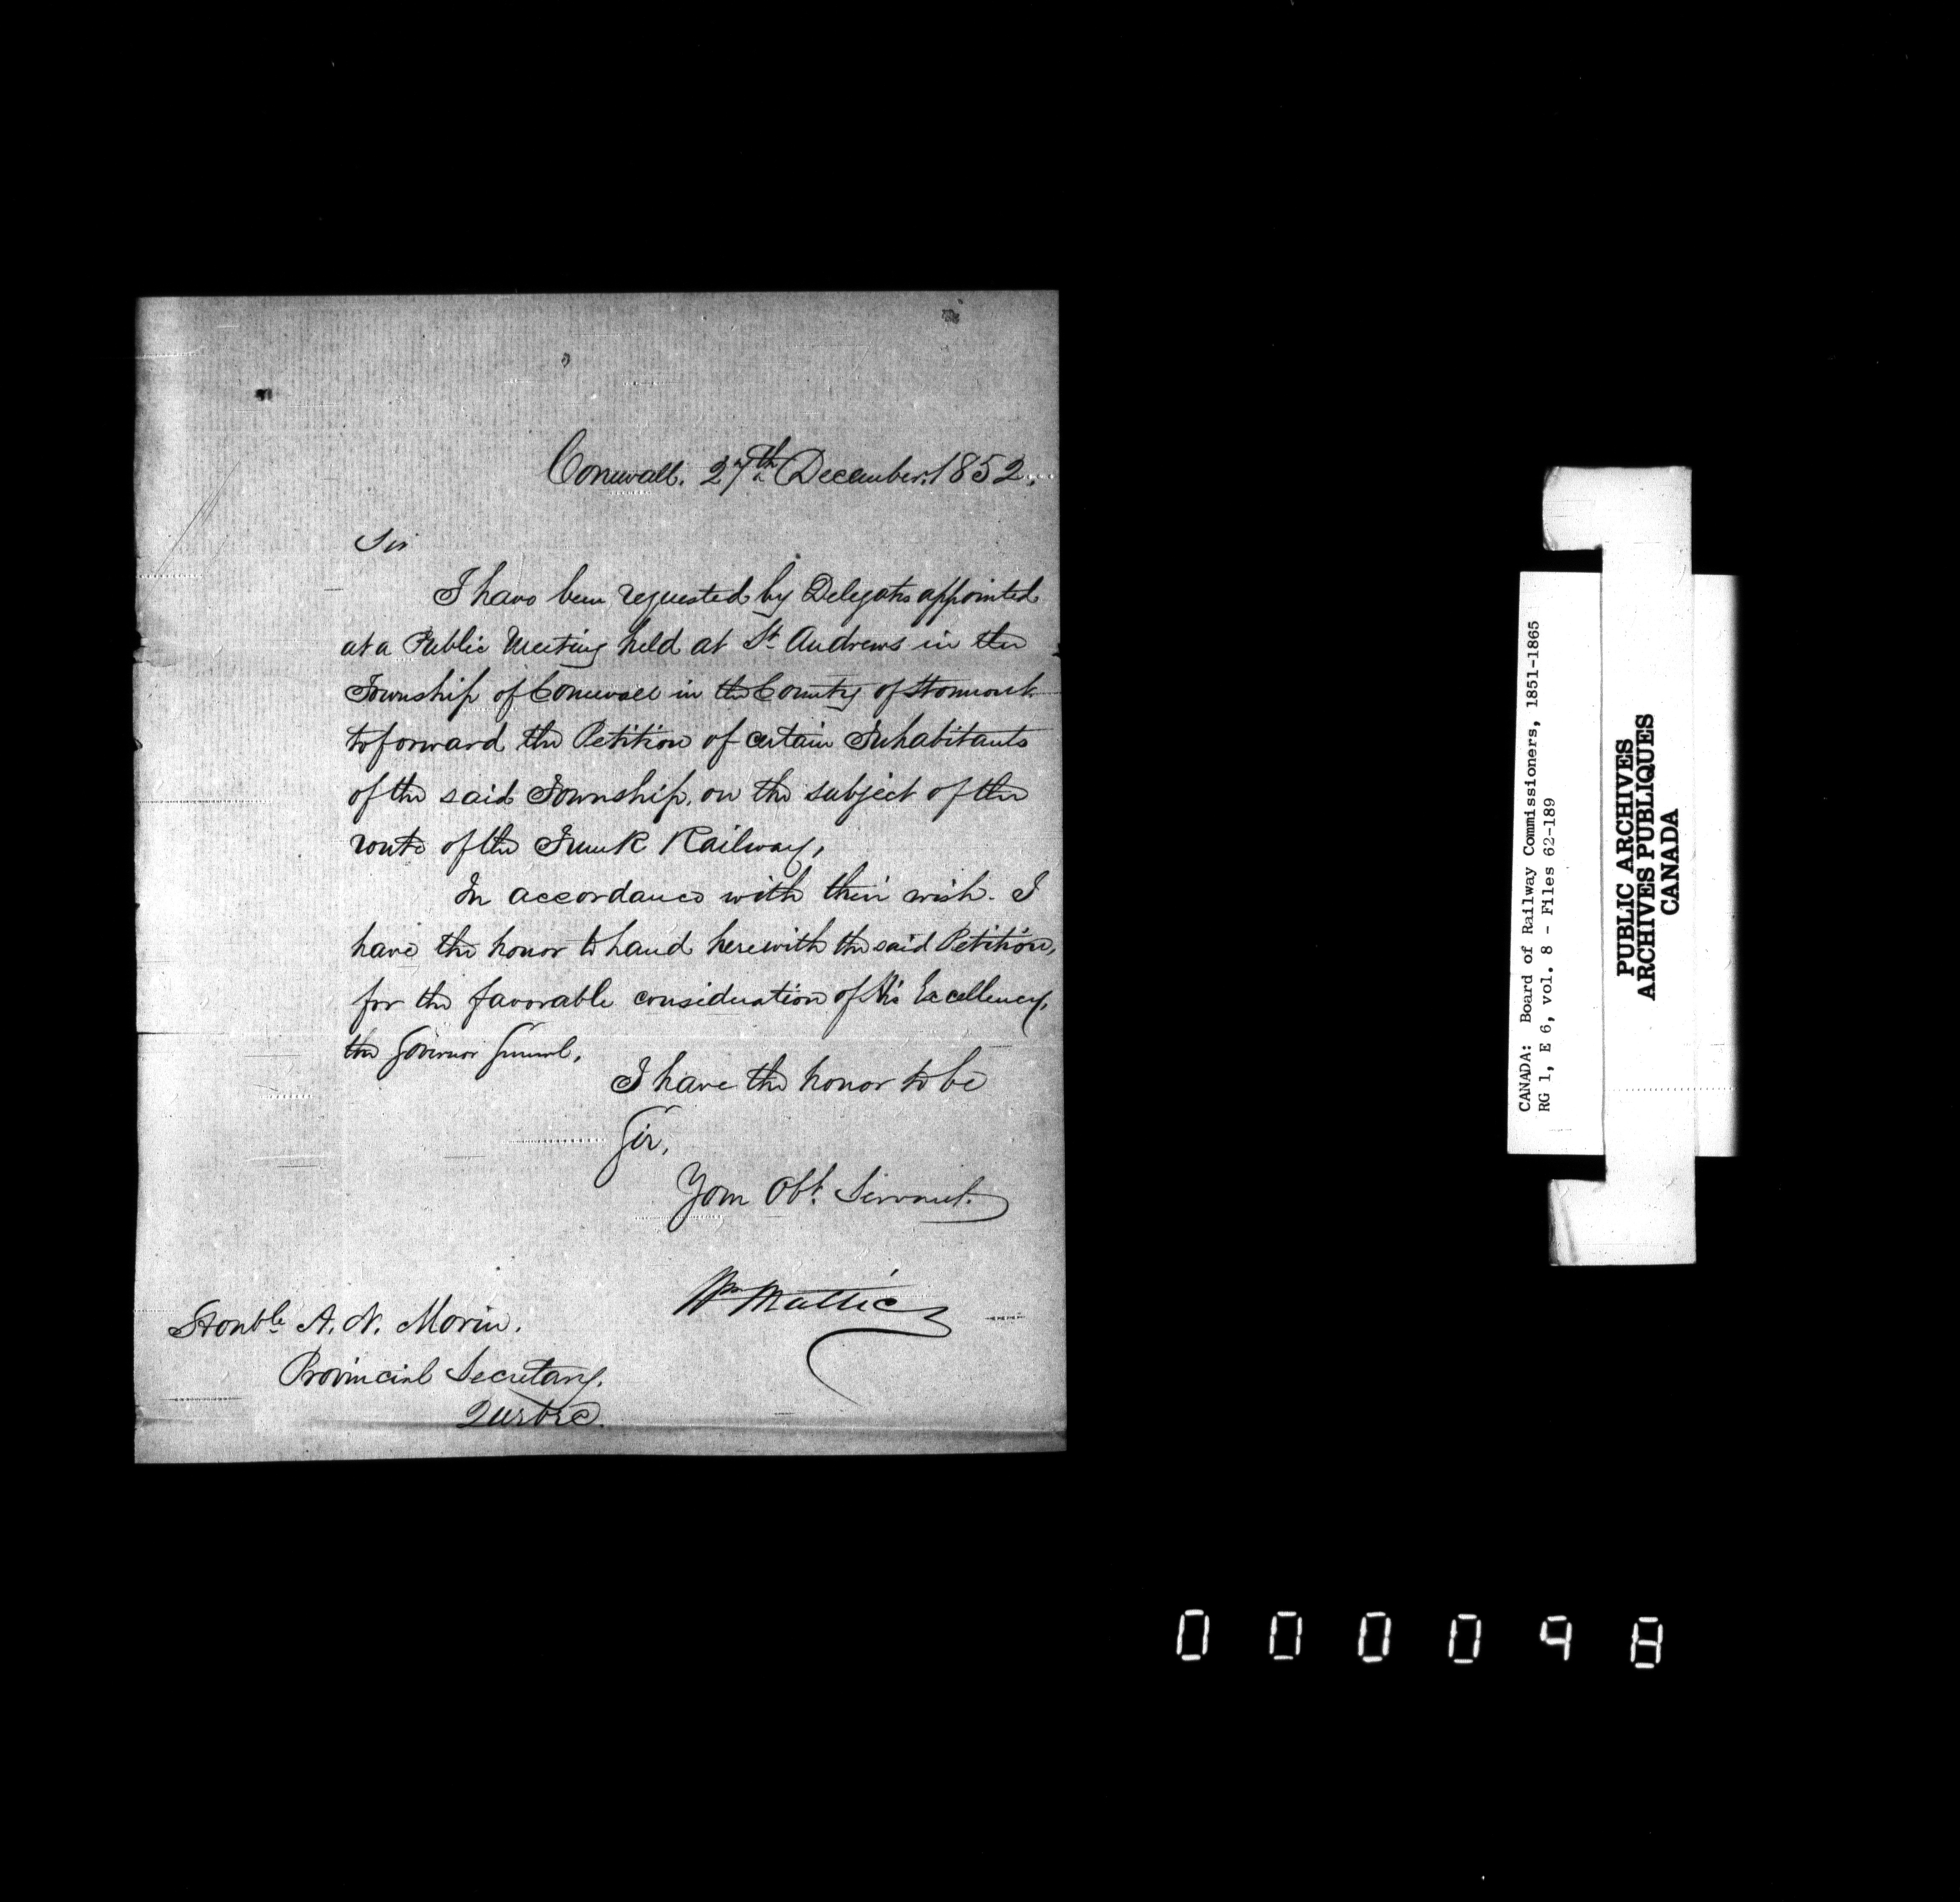 Cornwall. 27th December. 1852.
Sir
I have been requested by Delegates appointed
at a Public Meeting held at St Andrews in the
Township of Cornwall in the County of Stormont
to forward the Petition of certain Inhabitants
of the said Township, on the subject of the
route of the Trunk Railway,
In accordance with their wish. I
have the honor to hand herewith the said Petition,
for the favorable consideration of His Excellency,
the Governor General,
I have the honor to be
Sir,
Your Obt. Servant.
Wm Mattice
Honble A. N. Morin.
Provincial Secretary.
Quebec.
CANADA: Board of Railway Commissioners, 1851-1865
RG 1, E 6, vol. 8 - Files 62-189
PUBLIC ARCHIVES
ARCHIVES PUBLIQUES
CANADA
000098